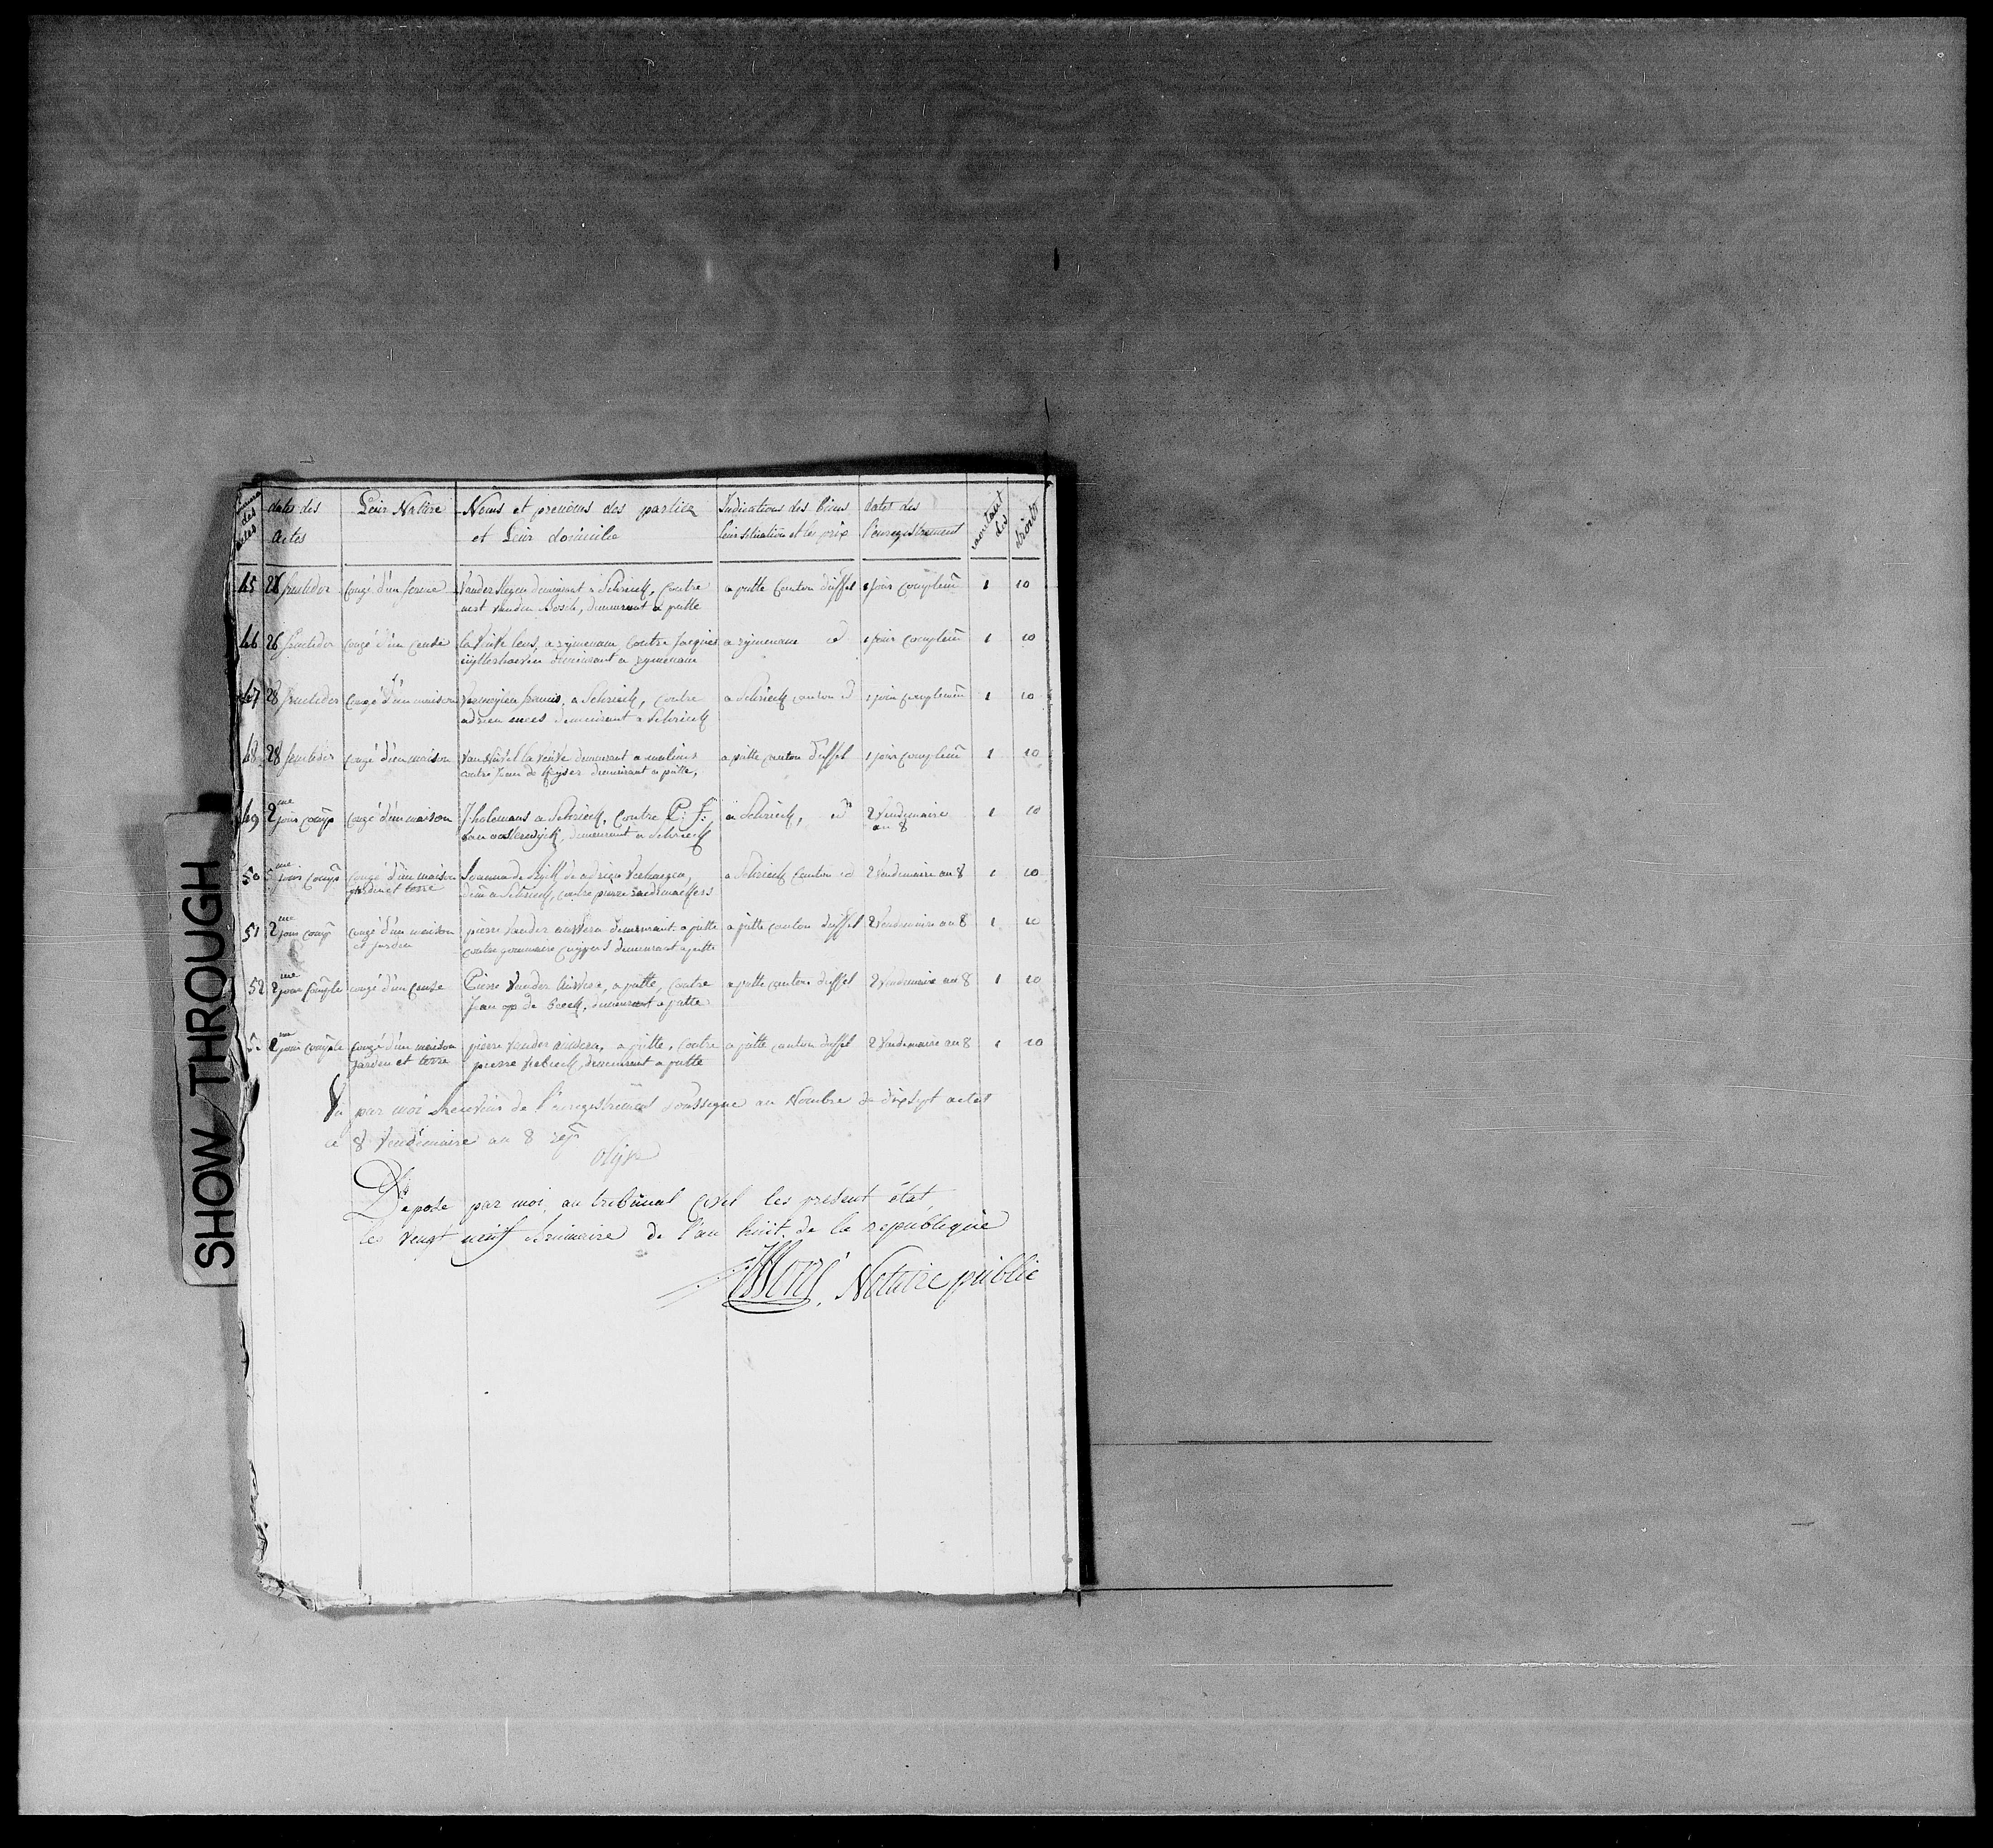 des actes | dates des actes | Leur Nature | Noms et prenoms des parties et Leur domicile | Indications des biens leur situation et les prix | dates des l'enregistrement | montant des droits
45 | 28 fructidor | congé d'un | Vander demeurant a Schrieck, contre
vanden Bosch, demeurant a putte | a putte canton duffel | 1 jour complem | 1 | 10
46 | 26 fructidor | congé d'un cense | la Veuve a rymenam contre Jacques
demeurant a rymenam | a rymenam id | 1 jour complem | 1 | 10
47 | 28 fructidor | congé d'un maison | francis, a Schrieck, contre
adrien mees demeurant a Schrieck | a Schrieck canton id | 1 jour complemen | 1 | 10
48 | 28 fructidor | congé d'un maison | la Veuve demeurant a malines
contre Jean de Keyser demeurant a putte, | a putte canton duffel | 1 jour complem | 1 | 10
49 | 2me jour comp | congé d'un maison | J holemans a Schrieck, contre P: J:
van oosterwijck, demeurant a Schrieck | a Schrieck, id | 2 Vendemiaire
an 8 | 1 | 10
50 | jour comp | congé d'un maison
jardin et terre | de adrien Verhaegen,
dem a Schrieck, contre pierre | a Schrieck canton id | 2 Vendemiaire an 8 | 1 | 10
51 | 2me jour comp | congé d'un maison
et jardin | pierre Vander auwera demeurant a putte
contre gommaire cuypers demeurant a putte | a putte canton duffel | 2 Vendemiaire an 8 | 1 | 10
52 | 2me jour comple | congé d'un cense | Pierre Vander Auwera, a putte, contre
Jean op de Beeck, demeurant a putte | a putte canton duffel | 2 Vendemiaire an 8 | 1 | 10
2me jour comple | congé d'un maison
jardin et terre | pierre Vander auwera, a putte, contre
pierre demeurant a putte | a putte canton duffel | 2 Vendemiaire an 8 | 1 | 10
Vu par moi Receveur de l'enregistrement Soussigne au Nombre de dix sept actes
ce 8 Vendemiaire an 8 rep
Dépose par moi au tribunal civil les present état
les Vengt neuf Brumaire de l'an huit de la republique
Notaire public
SHOW THROUGH